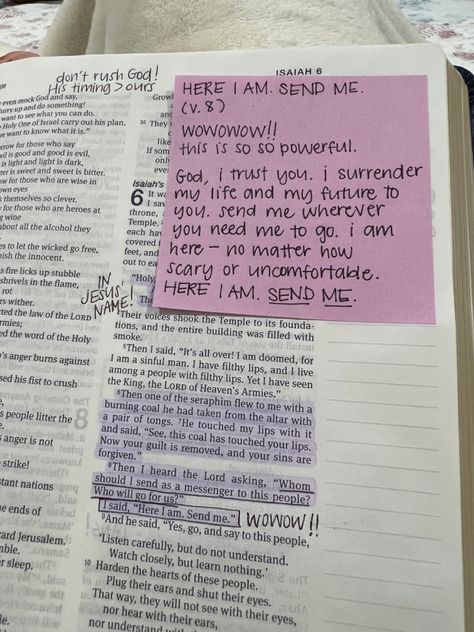 ISAIAH 6
don't rush God!
His timing > ours
HERE I AM. SEND ME.
(v. 8)
WOWOWOW!!
this is so so powerful.
God, i trust you. i surrender
my life and my future to
you. send me wherever
you need me to go. i am
here - no matter how
scary or uncomfortable.
HERE I AM. SEND ME.
even mock God and say,
urry up and do something!
want to see what you can do.
Holy One of Israel carry out his plan,
we want to know what it is."
orrow for those who say
vil is good and good is evil,
is light and light is dark,
tter is sweet and sweet is bitter.
ow for those who are wise in
own eyes
k themselves so clever.
w for those who are heroes at
g wine
about all the alcohol they
es to let the wicked go free,
nish the innocent.
as fire licks up stubble
shrivels in the flame,
rot
rs wither.
cted the law of the LORD
rmies;
ed the word of the Holy
's anger burns against
sed his fist to crush
s people litter the
s anger is not
strike!
stant nations
e ends of
ward Jerusalem.
mble.
r sleep.
IN
JESUS'
NAME!
Growl
30 They
like
If som
only
Isaiah's
6 It wa
I saw
throne,
Temple.
each hav
covered t
feet, and
out to ea
"Holy
Their voices shook the Temple to its founda-
tions, and the entire building was filled with
smoke.
5Then I said, "It's all over! I am doomed, for
I am a sinful man. I have filthy lips, and I live
among a people with filthy lips. Yet I have seen
the King, the LORD of Heaven's Armies."
6Then one of the seraphim flew to me with a
burning coal he had taken from the altar with
a pair of tongs. 7He touched my lips with it
and said, "See, this coal has touched your lips.
Now your guilt is removed, and your sins are
forgiven."
8Then I heard the Lord asking, "Whom
should I send as a messenger to this people?
Who will go for us?"
I said, "Here I am. Send me."
WOWOW!!
9And he said, "Yes, go, and say to this people,
'Listen carefully, but do not understand.
Watch closely, but learn nothing.'
10 Harden the hearts of these people.
Plug their ears and shut their eyes.
That way, they will not see with their eyes,
nor hear with their ears,
nor understand with